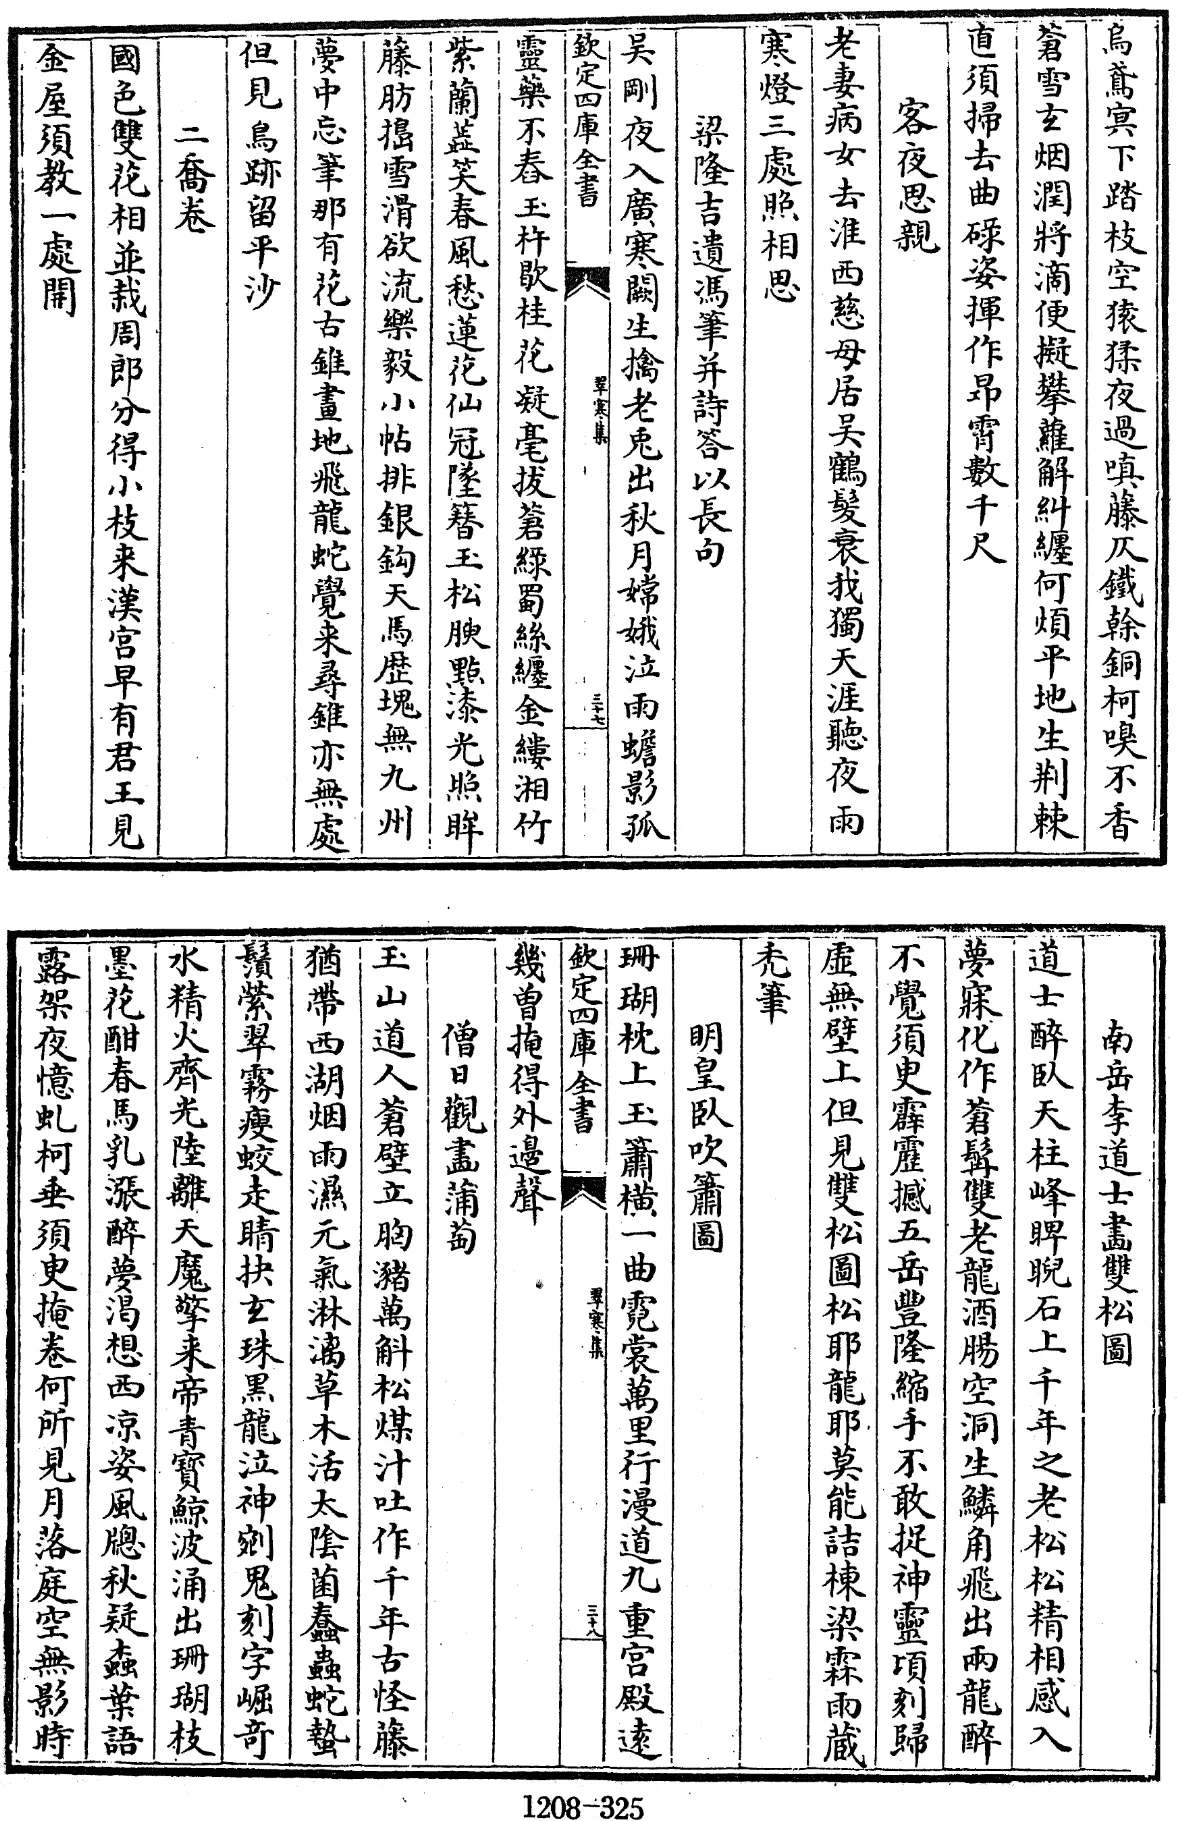 烏鳶冥下踏枝空猿猱夜過嗔藤仄鐵榦銅柯嗅不香
蒼雪玄烟潤將滴便擬攀蘿解糾纏何煩平地生荆棘
直須掃去曲碌姿揮作昂霄數千尺
客夜思親
老妻病女去淮西慈母居吴鶴髮衰我獨天涯聽夜雨
寒燈三處照相思
梁隆吉遺馮筆并詩答以長句
吴剛夜入廣寒闕生擒老兎出秋月嫦娥泣雨蟾影孤
欽定四庫全書
翠寒集
三十七
靈藥不舂玉杵歇桂花凝毫拔蒼緑蜀絲纏金縷湘竹
紫蘭蕋笑春風愁蓮花仙冠墜簪玉松腴㸃漆光照眸
藤肪搗雪滑欲流樂毅小帖排銀鈎天馬歴塊無九州
夢中忘筆那有花古錐畫地飛龍蛇覺来尋錐亦無處
但見鳥跡留平沙
二喬卷
國色雙花相並栽周郎分得小枝来漢宫早有君王見
金屋須教一處開
南岳李道士畫雙松圖
道士醉臥天柱峰睥睨石上千年之老松松精相感入
夢寐化作蒼髯雙老龍酒腸空洞生鱗角飛出兩龍醉
不覺須臾霹靂撼五岳豐隆縮手不敢捉神靈頃刻歸
虚無壁上但見雙松圖松耶龍耶莫能詰棟梁霖雨蔵
秃筆
明皇臥吹簫圖
珊瑚枕上玉簫横一曲霓裳萬里行漫道九重宫殿逺
欽定四庫全書
翠寒集
三十八
幾曾掩得外邊聲
僧日觀畫蒲萄
玉山道人蒼壁立胸瀦萬斛松煤汁吐作千年古怪藤
猶帶西湖烟雨濕元氣淋漓草木活太隂菌蠢蟲蛇蟄
鬚縈翠霧瘦蛟走睛抉玄珠黑龍泣神剜鬼刻字崛竒
水精火齊光陸離天魔擎来帝青寶鯨波涌出珊瑚枝
墨花酣春馬乳漲醉夢渇想西凉姿風牕秋疑蟲葉語
露架夜憶虬柯垂須臾掩卷何所見月落庭空無影時
1208-325